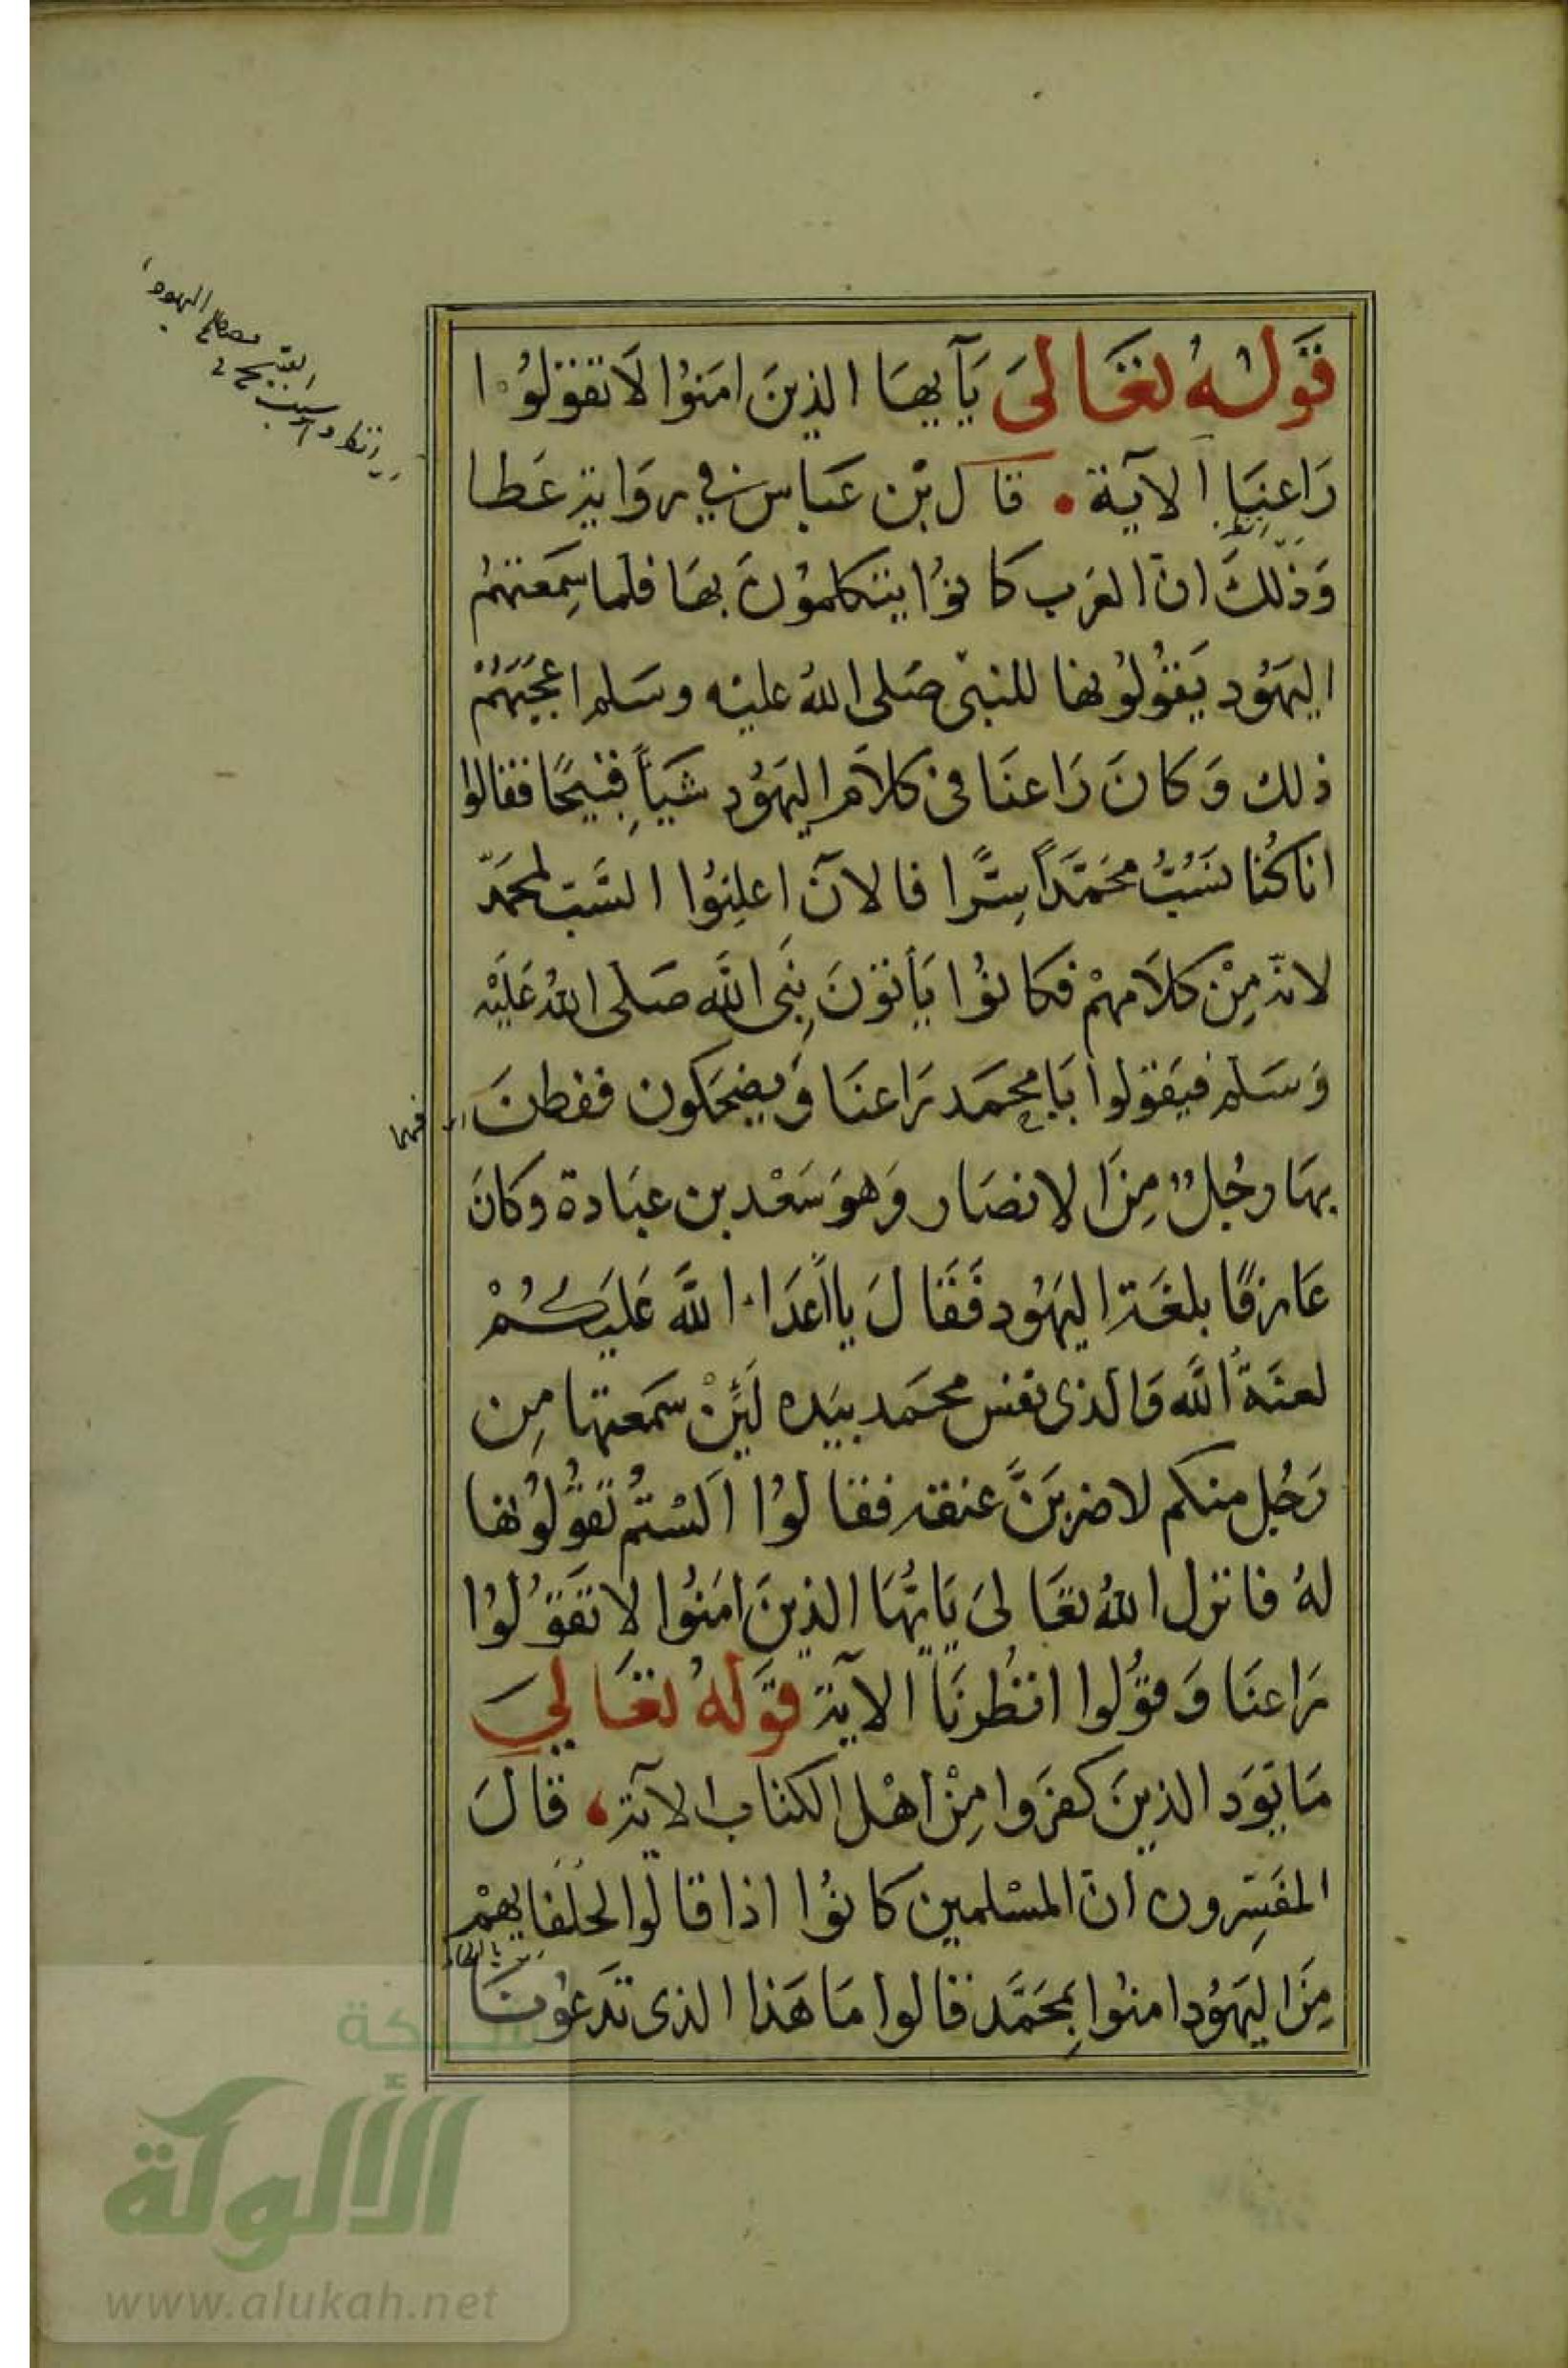 قوله تعالى يآيها الذين امنوا لا تقولوا
راعنا الآية قال بن عباس في رواية عطا
وذلك ان العرب كانوا يتكلمون بها فلما سمعتهم
اليهود يقولونها للنبي صلى الله عليه وسلم اعجبهم
ذلك وكان راعنا في كلام اليهود شيأ قبيحا فقالوا
انا كنا نسب محمدا سرا فالآن اعلنوا السب لمحمد
لانه من كلامهم فكانوا يأتون نبي الله صلى الله عليه
وسلم فيقولوا يا محمد راعنا ويضحكون ففطن
بها رجل من الانصار وهو سعد بن عبادة وكان
عارفا بلغة اليهود فقال يا اعداء الله عليكم
لعنة الله والذى نفس محمد بيده لئن سمعتها من
رجل منكم لاضربن عنقه فقالوا الستم تقولونها
له فانزل الله تعالى يايها الذين امنوا لا تقولوا
راعنا وقولوا انظرنا الآية قوله تعالى
ما يود الذين كفروا من اهل الكتاب الآية قال
المفسرون ان المسلمين كانوا اذا قالوا لحلفايهم
من اليهود امنوا بمحمد قالوا ما هذا الذى تدعوننا
شبكة
الألوكة
www.alukah.net